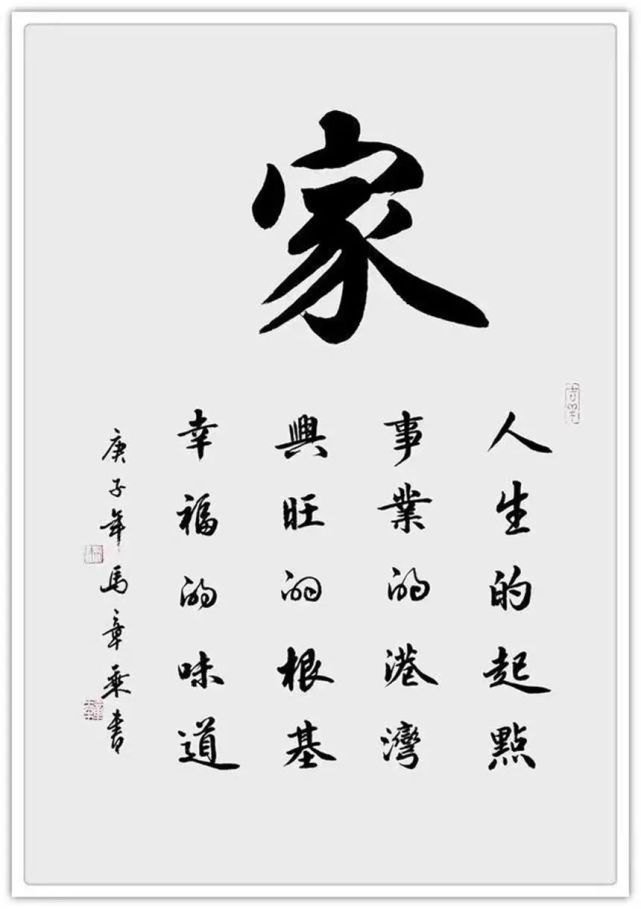 家
人生的起點
事業的港灣
興旺的根基
幸福的味道
庚子年馬章乘書